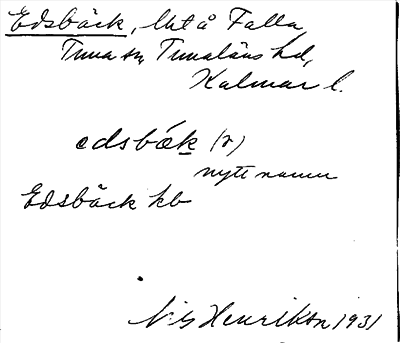 Edsbäck, lht å Falla
Tuna sn, Tunaläns hd,
Kalmar l.
edsbæk (r)
nytt namn
Edsbäck kb
Nils Henrikson 1931